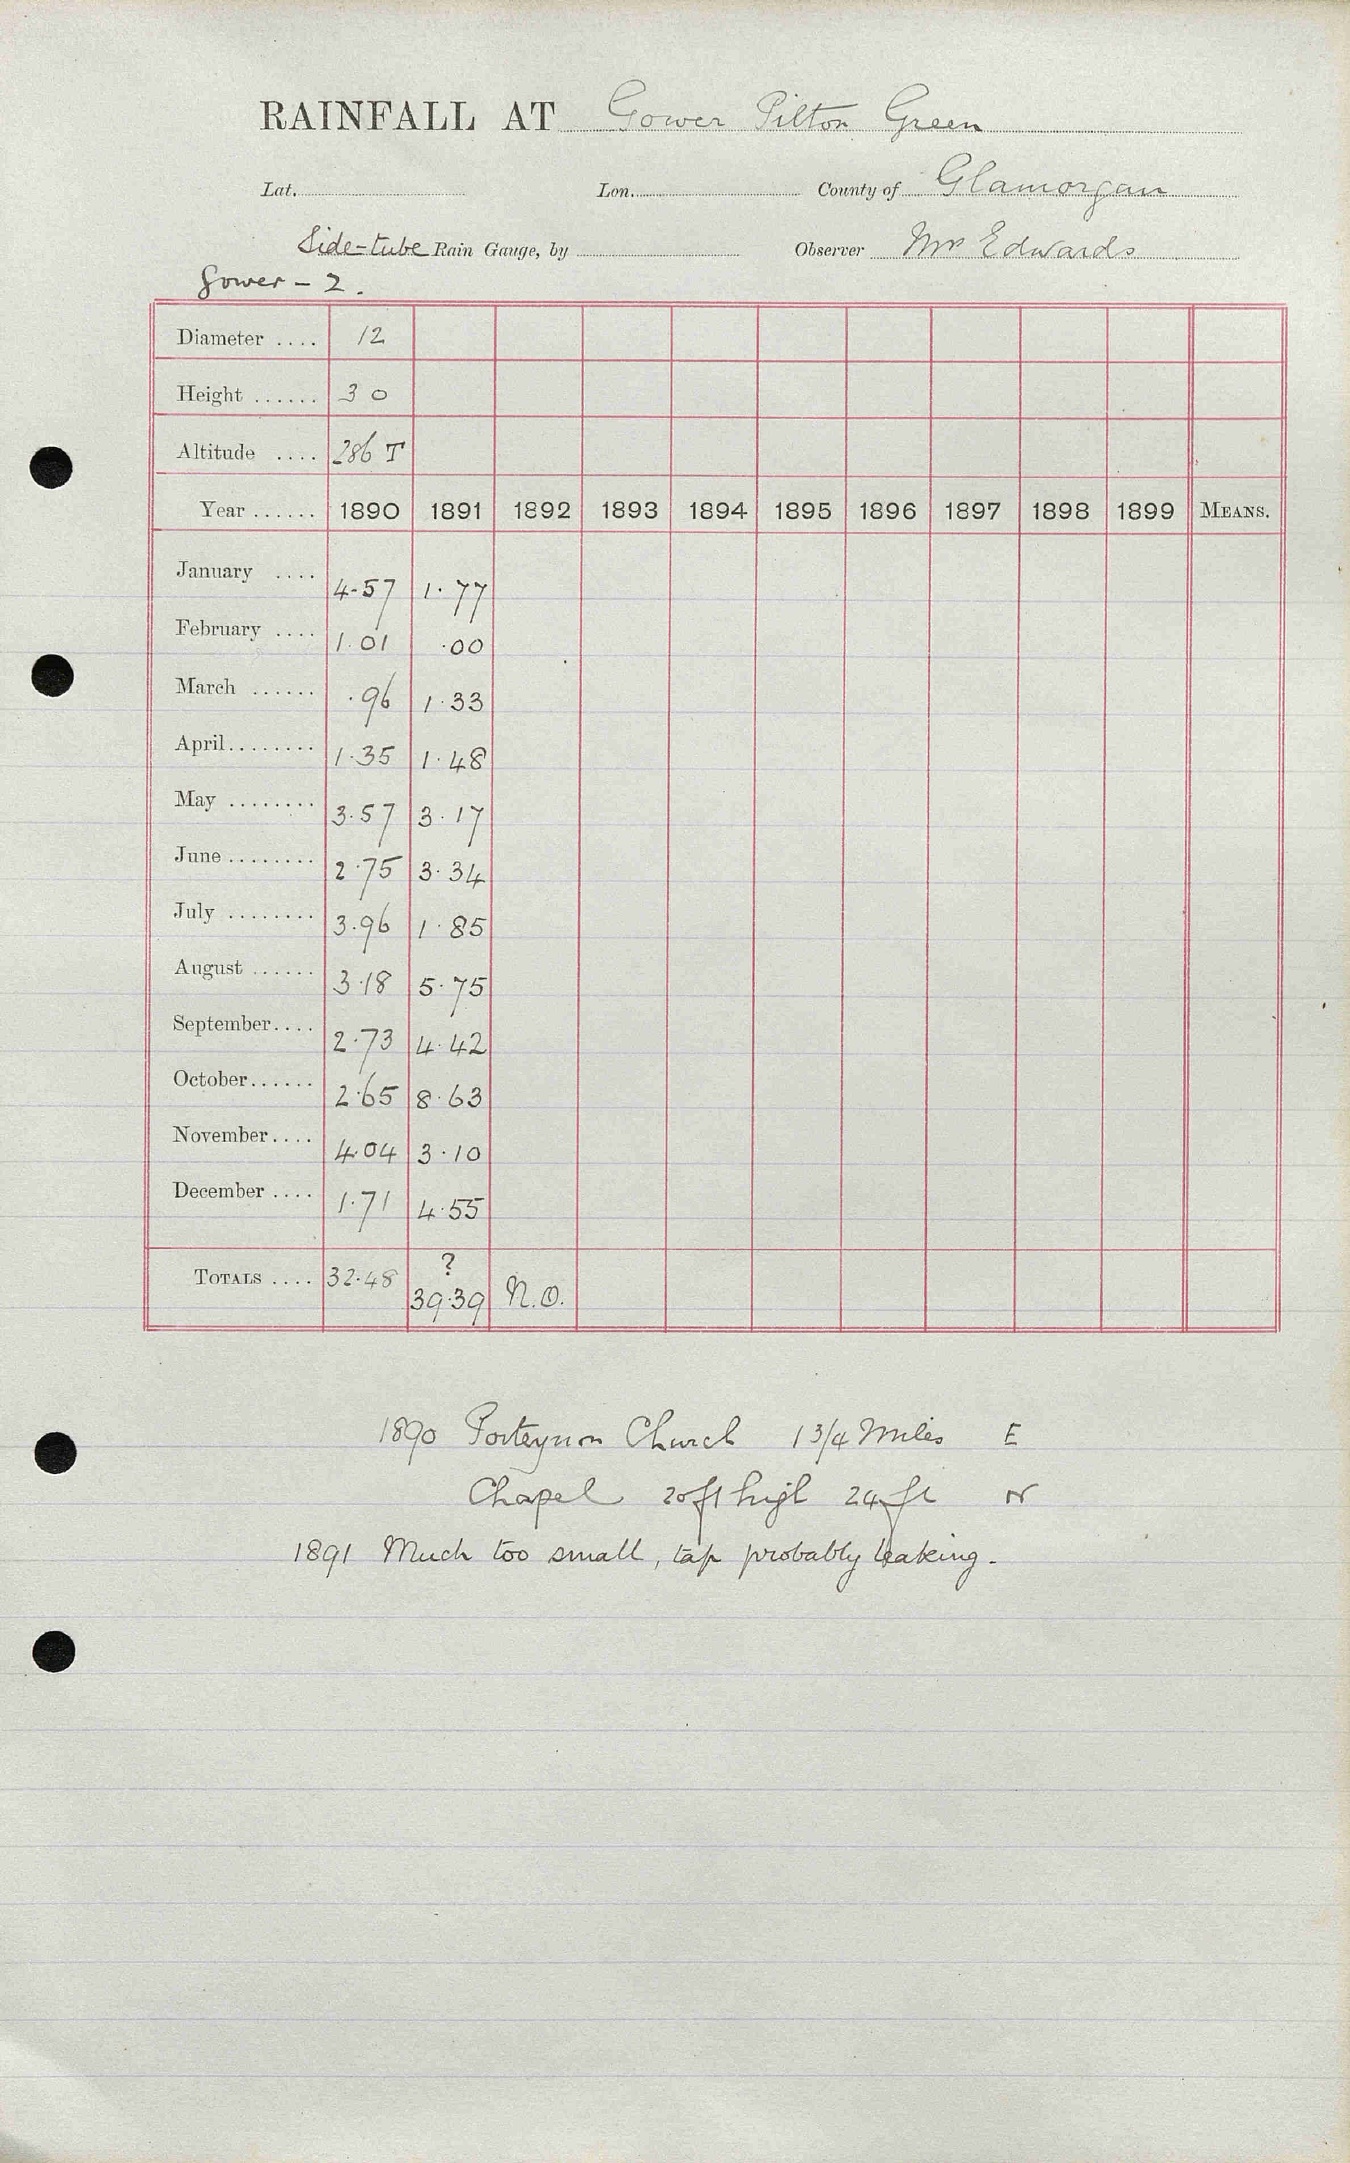 RAINFALL AT Gower Pilton Green
Lat. Lon. County of Glamorgan
Side-tube Rain Gauge, by Observer Mrs Edwards
Gower - 2.
Diameter .... 12
Height ...... 3 0
Altitude .... 286 T
Year ...... 1890 1891 1892 1893 1894 1895 1896 1897 1898 1899 MEANS.
January .... 4.57 1.77
February .... 1.01 .00
March ...... .96 1.33
April........ 1.35 1.48
May ........ 3.57 3.17
June ........ 2.75 3.34
July ........ 3.96 1.85
August ...... 3.18 5.75
September.... 2.73 4.42
October...... 2.65 8.63
November.... 4.04 3.10
December .... 1.71 4.55
?
TOTALS .... 32.48 39.39 N.O.
1890 Porteynon Church 1 3/4 Miles E
Chapel 20ft high 24 ft N
1891 Much too small, tap probably leaking.